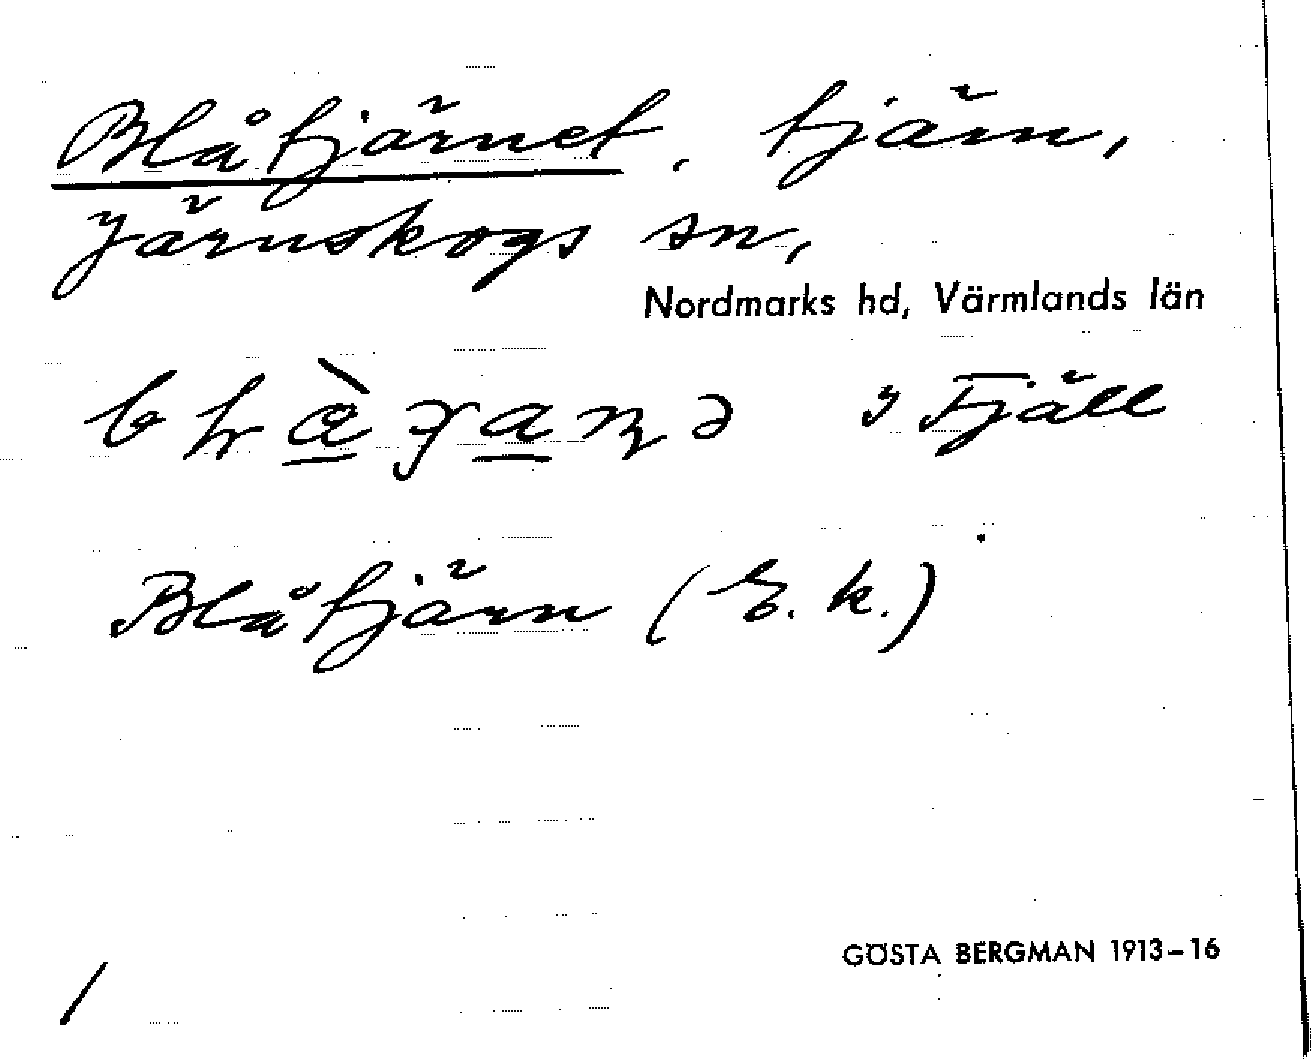 Blåtjärnet, tjärn,
Järnskogs sn,
Nordmarks hd, Värmlands län
y Fjäll
Blåtjärn (E. k.)
GÖSTA BERGMAN 1913–16
/